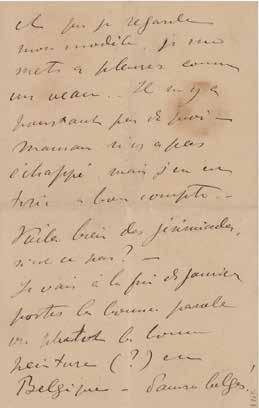 et puis je regarde
mon modèle, je me
mets à pleurer comme
un veau... Il n'y a
pourtant pas de quoi –
maman n'y a pas
échappé, mais j'en en
à bon compte. –
Voila bien des jérémiades,
n'est ce pas ? –
Je vais à la fin de janvier
porter la bonne parole
ou plutot la bonne
peinture (?) en
Belgique – Pauvres belges !